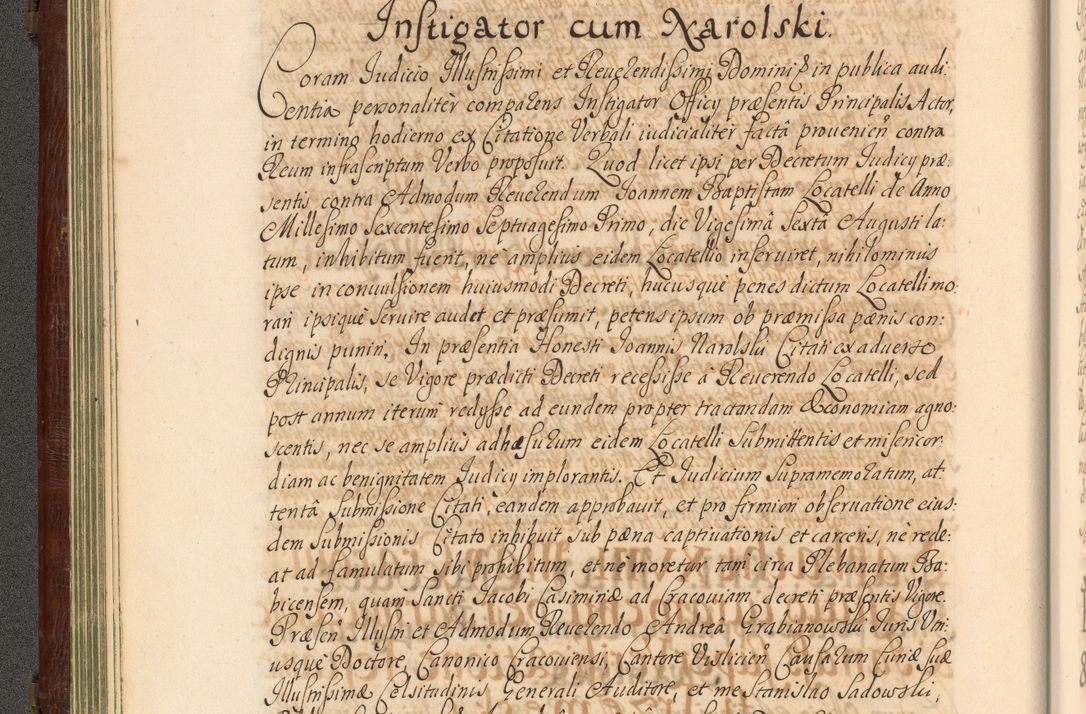 Instigator cum Narolski.
Coram Iudicio Illustrissimi et Reuerendissimi Domini in publica audi:
entia personaliter comparens Instigator Officy præsentis Principalis Actor,
in termino hodierno ex Citatione Verbali iudicialiter factâ prouenien contra
Reum infrascriptum Verbo proposuit. Quod licet ipsi per Decretum Iudicy præ:
sentis contra Admodum Reuerendum Ioannem Baptistam Locatelli de Anno
Millesimo Sexcentesimo Septuagesimo Primo, die Vigesimâ Sextâ Augusti la:
tum, inhibitum fuerit, ne amplius eidem Locatellio inseruiret, nihilominus
ipse in conuulsionem huiusmodi Decreti, hucusque penes dictum Locatelli mo:
rari ipsique seruire audet et præsumit, petens ipsum ob præmissa pænis con:
dignis puniri, In præsentia Honesti Ioannis Narolski Citati ex aduerso
Principalis, se Vigore prædicti Decreti recessisse â Reuerendo Locatelli, sed
post annum iterum redysse ad eundem propter tractandam Œconomiam agno:
scentis, nec se amplius adhæsurum eidem Locatelli submittentis et misericor:
diam ac benignitatem Iudicy implorantis. Et Iudicium supramemoratum, at:
tentâ submissione Citati, eandem approbauit, et pro firmiori obseruatione eius:
dem submissionis Citato inhibuit sub pæna captiuationis et carceris, ne rede:
at ad famulatum sibi prohibitum, et ne moretur tam circa Plebanatum Ba:
bicensem, quam Sancti Iacobi Casimiriæ ad Cracouiam, decreti præsentis Vigore.
Præsen Illustri et Admodum Reuerendo Andreâ Grabianowski Iuris Vtri:
usque Doctore, Canonico Cracouiensi, Cantore Vislicien Causarum Curiæ suæ
Illustrissimæ Celsitudinis Generali Auditore, et me Stanislao Sadowski,